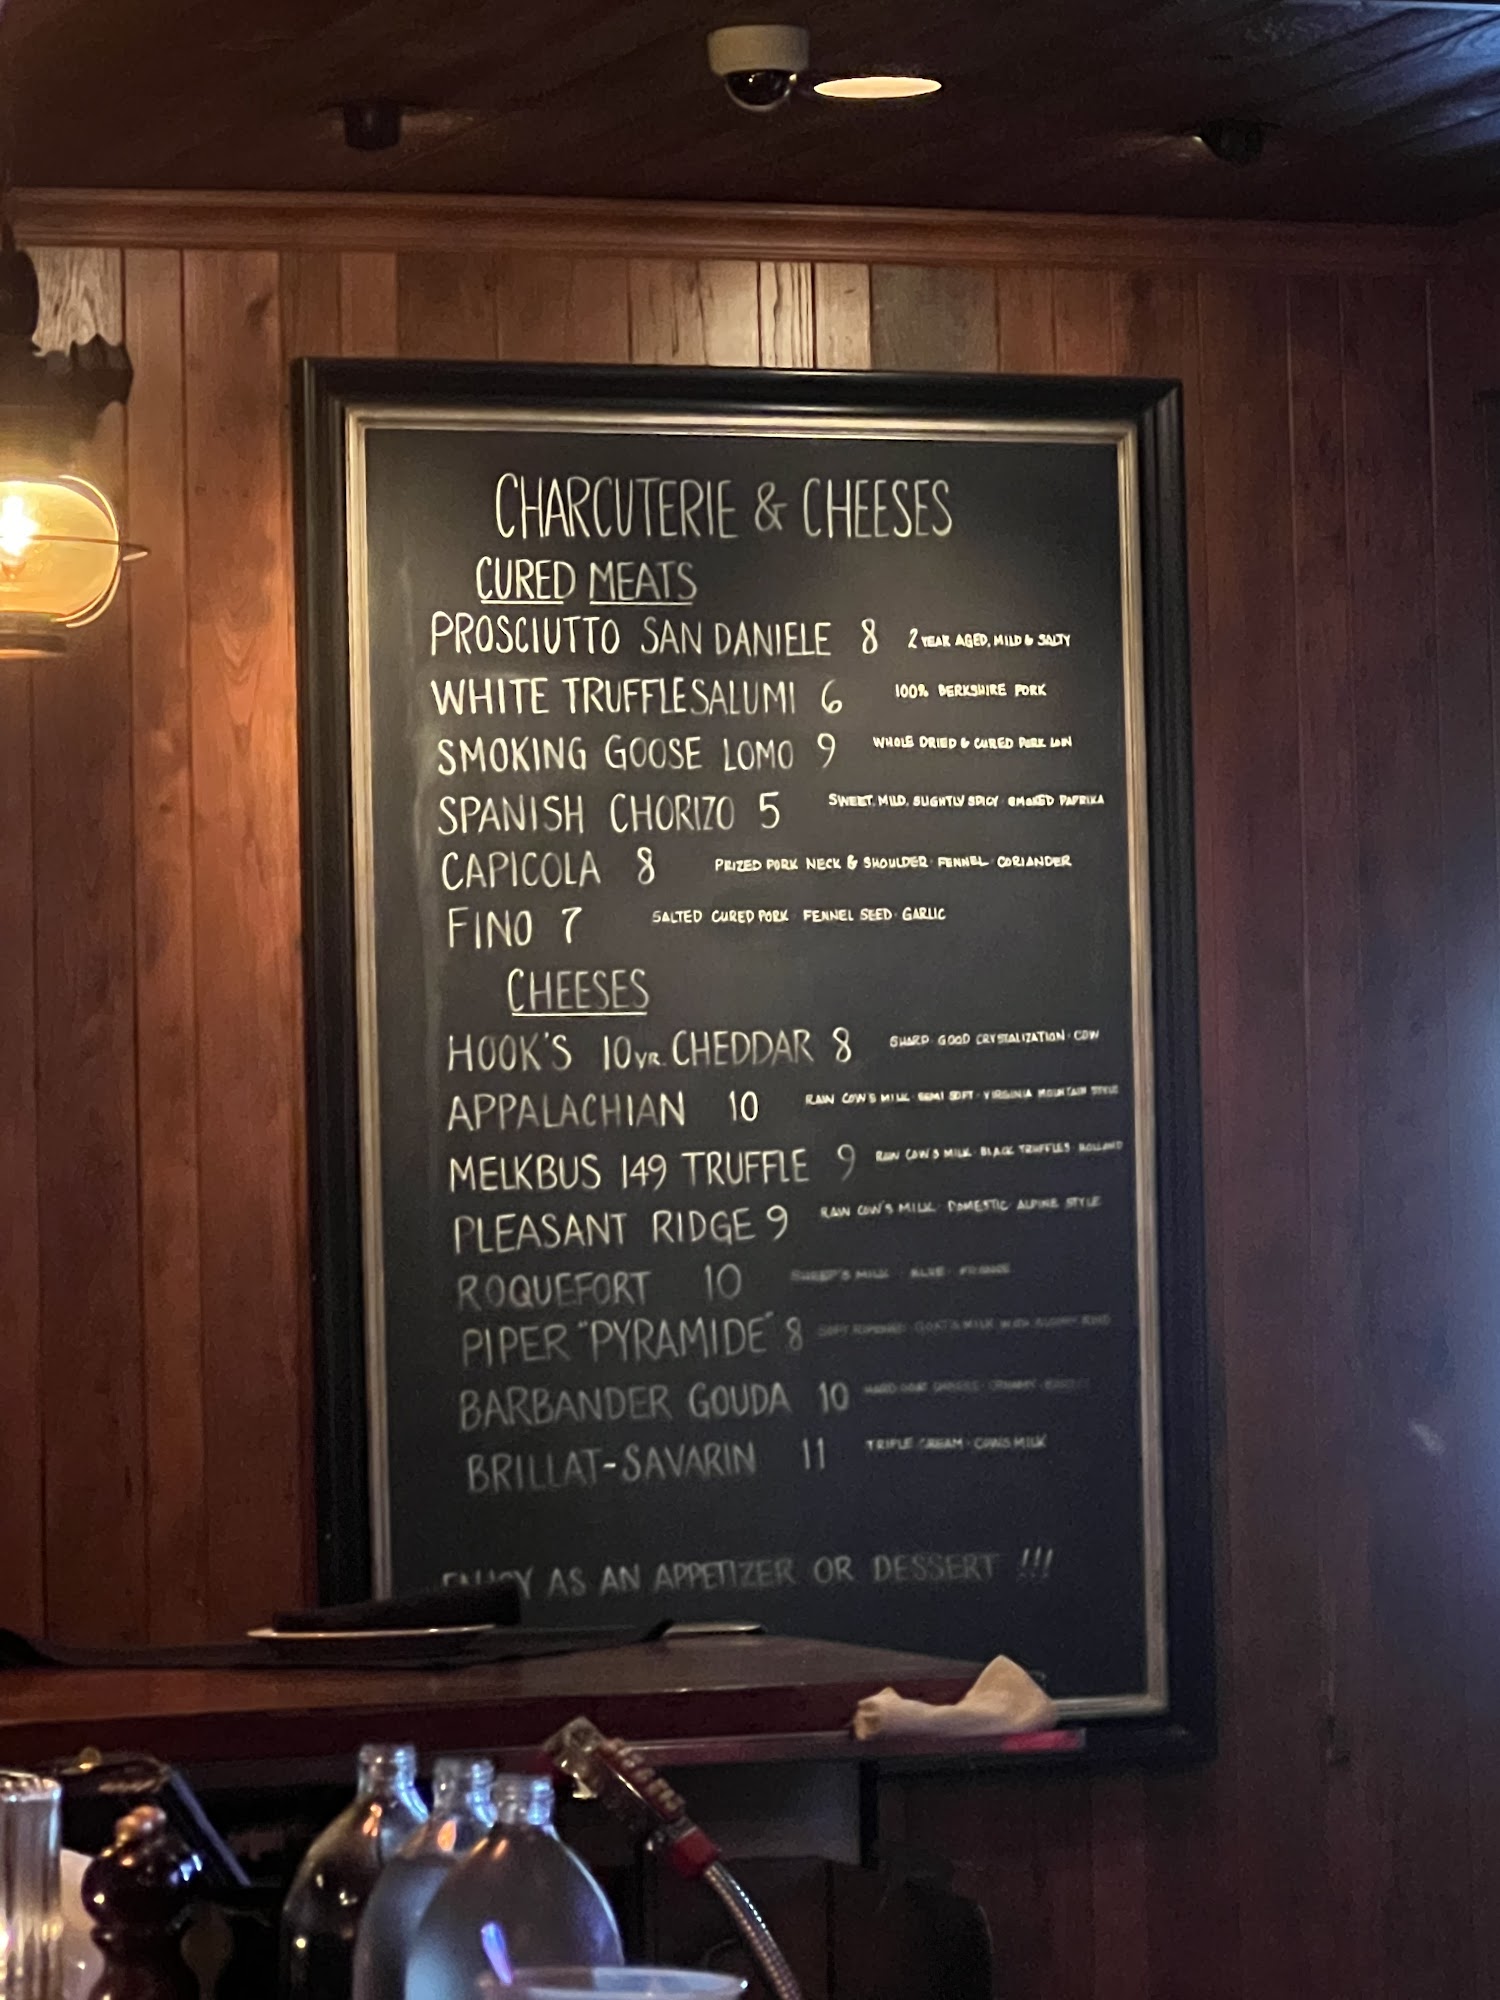 CHARCUTERIE & CHEESES
CURED MEATS
PROSCIUTTO SAN DANIELE 8 2 YEAR AGED, MILD & SALTY
WHITE TRUFFLE SALUMI 6 100% BERKSHIRE PORK
SMOKING GOOSE LOMO 9 WHOLE DRIED & CURED PORK LOIN
SPANISH CHORIZO 5 SWEET, MILD, SLIGHTLY SPICY · SMOKED PAPRIKA
CAPICOLA 8 PRIZED PORK NECK & SHOULDER · FENNEL · CORIANDER
FINO 7 SALTED CURED PORK · FENNEL SEED · GARLIC
CHEESES
HOOK'S 10 YR. CHEDDAR 8 SHARP · GOOD CRYSTALIZATION · COW
APPALACHIAN 10 RAW COW'S MILK · SEMI SOFT · VIRGINIA MOUNTAIN STYLE
MELKBUS 149 TRUFFLE 9 RAW COW'S MILK · BLACK TRUFFLES · HOLLAND
PLEASANT RIDGE 9 RAW COW'S MILK · DOMESTIC · ALPINE STYLE
ROQUEFORT 10 SHEEP'S MILK · BLUE · FRANCE
PIPER "PYRAMIDE" 8 SOFT RIPENED · GOAT'S MILK WITH BLOOMY RIND
BARBANDER GOUDA 10 HARD GOAT CHEESE · CREAMY
BRILLAT-SAVARIN 11 TRIPLE CREAM · COWS MILK
ENJOY AS AN APPETIZER OR DESSERT !!!